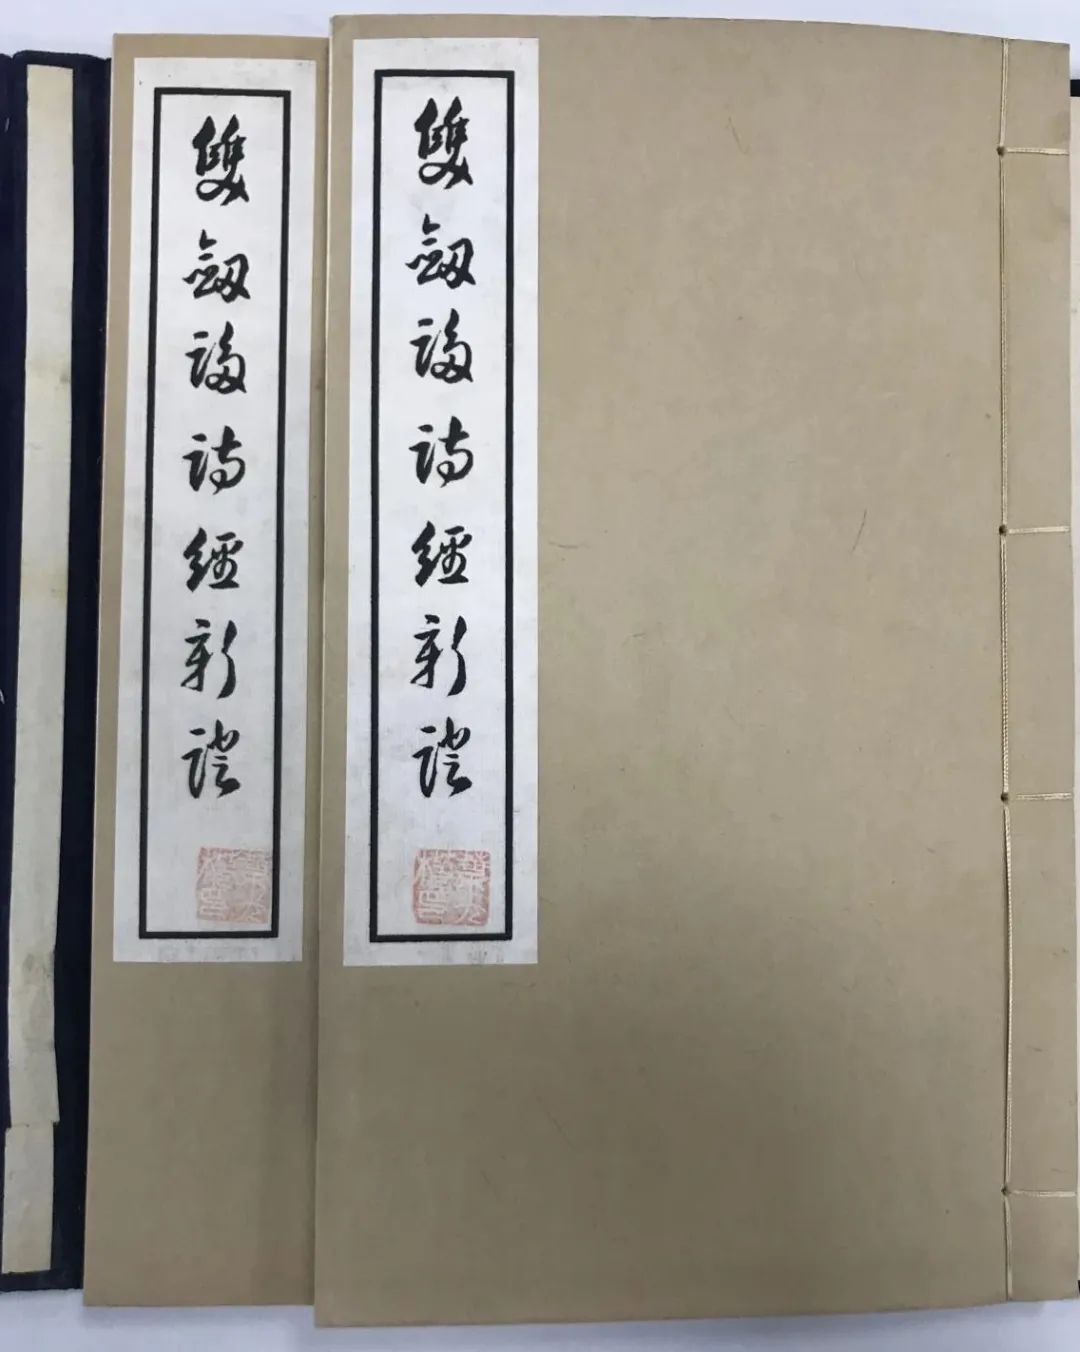 雙劒誃詩經新證
雙劒誃詩經新證